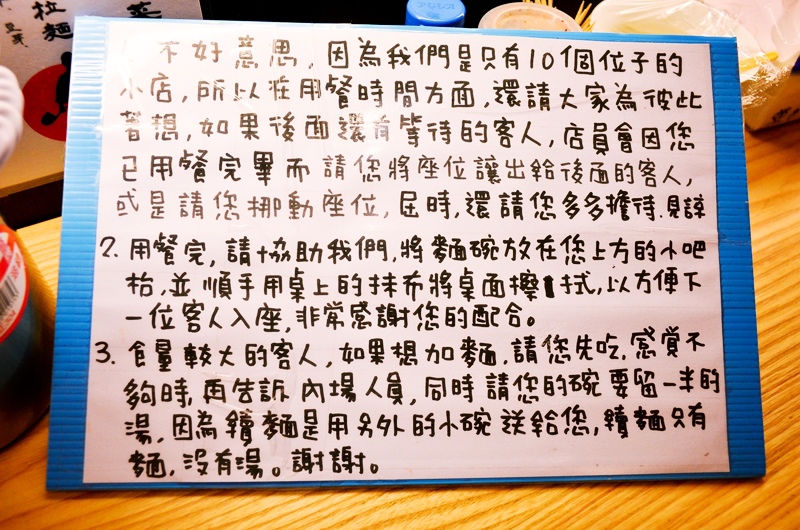 拉麵
不好意思,因為我們是只有10個位子的
小店,所以在用餐時間方面,還請大家為彼此
著想,如果後面還有等待的客人,店員會因您
已用餐完畢而請您將座位讓出給後面的客人,
或是請您挪動座位,屆時,還請您多多擔待.見諒
2. 用餐完,請協助我們,將麵碗放在您上方的小吧
枱,並順手用桌上的抹布將桌面擦拭,以方便下
一位客人入座,非常感謝您的配合。
3. 食量較大的客人,如果想加麵,請您先吃,感覺不
夠時,再告訴內場人員,同時請您的碗要留一半的
湯,因為續麵是用另外的小碗送給您,續麵只有
麵,沒有湯。謝謝。